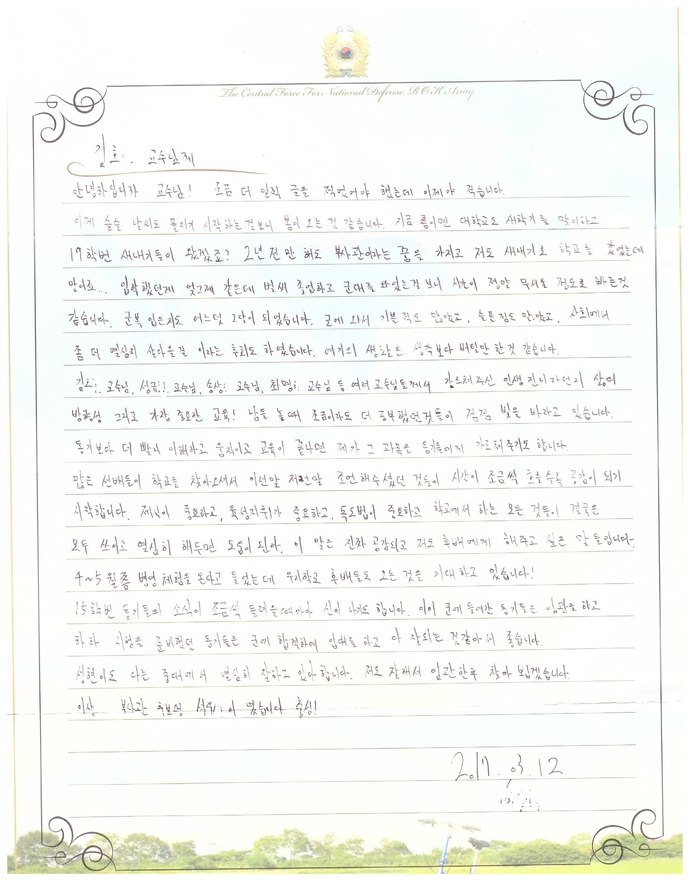 The Central Force For National Defense, R O K Army
김호 교수님께
안녕하십니까 교수님! 조금 더 일찍 글을 적었어야 했는데 이제야 적습니다.
이제 슬슬 날씨도 풀리기 시작하는걸보니 봄이 오는 것 같습니다. 지금 쯤이면 대학교도 새학기를 맞이하고
17학번 새내기들이 왔겠죠? 2년 전만 해도 부사관이라는 꿈을 가지고 저도 새내기로 학교를 갔었는데
말이죠... 입학했던게 엊그제 같은데 벌써 졸업하고 군대를 와있는걸 보니 시간이 정말 무서울 정도로 빠른것
같습니다. 군복 입은지도 어느덧 2달이 되었습니다. 군에 와서 기쁜적도 많았고, 슬픈점도 많았고, 사회에서
좀 더 열심히 살아올걸 이라는 후회도 하였습니다. 여기의 생활은 생각보다 버틸만 한것 같습니다.
교수님, 교수님, 교수님, 교수님 등 여러 교수님들께서 가르쳐주신 인생 진리라던지 삶의
방향성 그리고 가장 중요한 교육! 남들 놀때 조금이라도 더 공부했던것들이 점점 빛을 바라고 있습니다.
동기보다 더 빨리 이해하고 움직이고 교육이 끝나면 제가 그 과목을 동기들에게 가르쳐주기도 합니다.
많은 선배들이 학교를 찾아오셔서 이런말 저런말 조언해주셨던 것들이 시간이 조금씩 흐를수록 공감이 되기
시작합니다. 제식이 중요하고, 육성지휘가 중요하고, 독도법이 중요하고 학교에서 하는 모든 것들이 결국은
모두 쓰이고 열심히 해두면 도움이 된다. 이 말은 진짜 공감되고 저도 후배에게 해주고 싶은 말 들입니다.
4~5월쯤 병영체험을 온다고 들었는데 우리학교 후배들도 오는 것을 기대하고 있습니다!
15학번 동기들의 소식이 조금씩 들려올때마다 신이 나기도 합니다. 이미 군에 들어간 동기들은 임관을 하고
하나 시험을 준비했던 동기들은 군에 합격하여 입대를 하고 다 잘되는 것같아서 좋습니다.
성현이도 다른 중대에서 열심히 잘하고 있다 합니다. 저도 잘해서 임관한후 찾아 뵙겠습니다.
이상 부사관 후보생 였습니다 충성!
2017. 03. 12